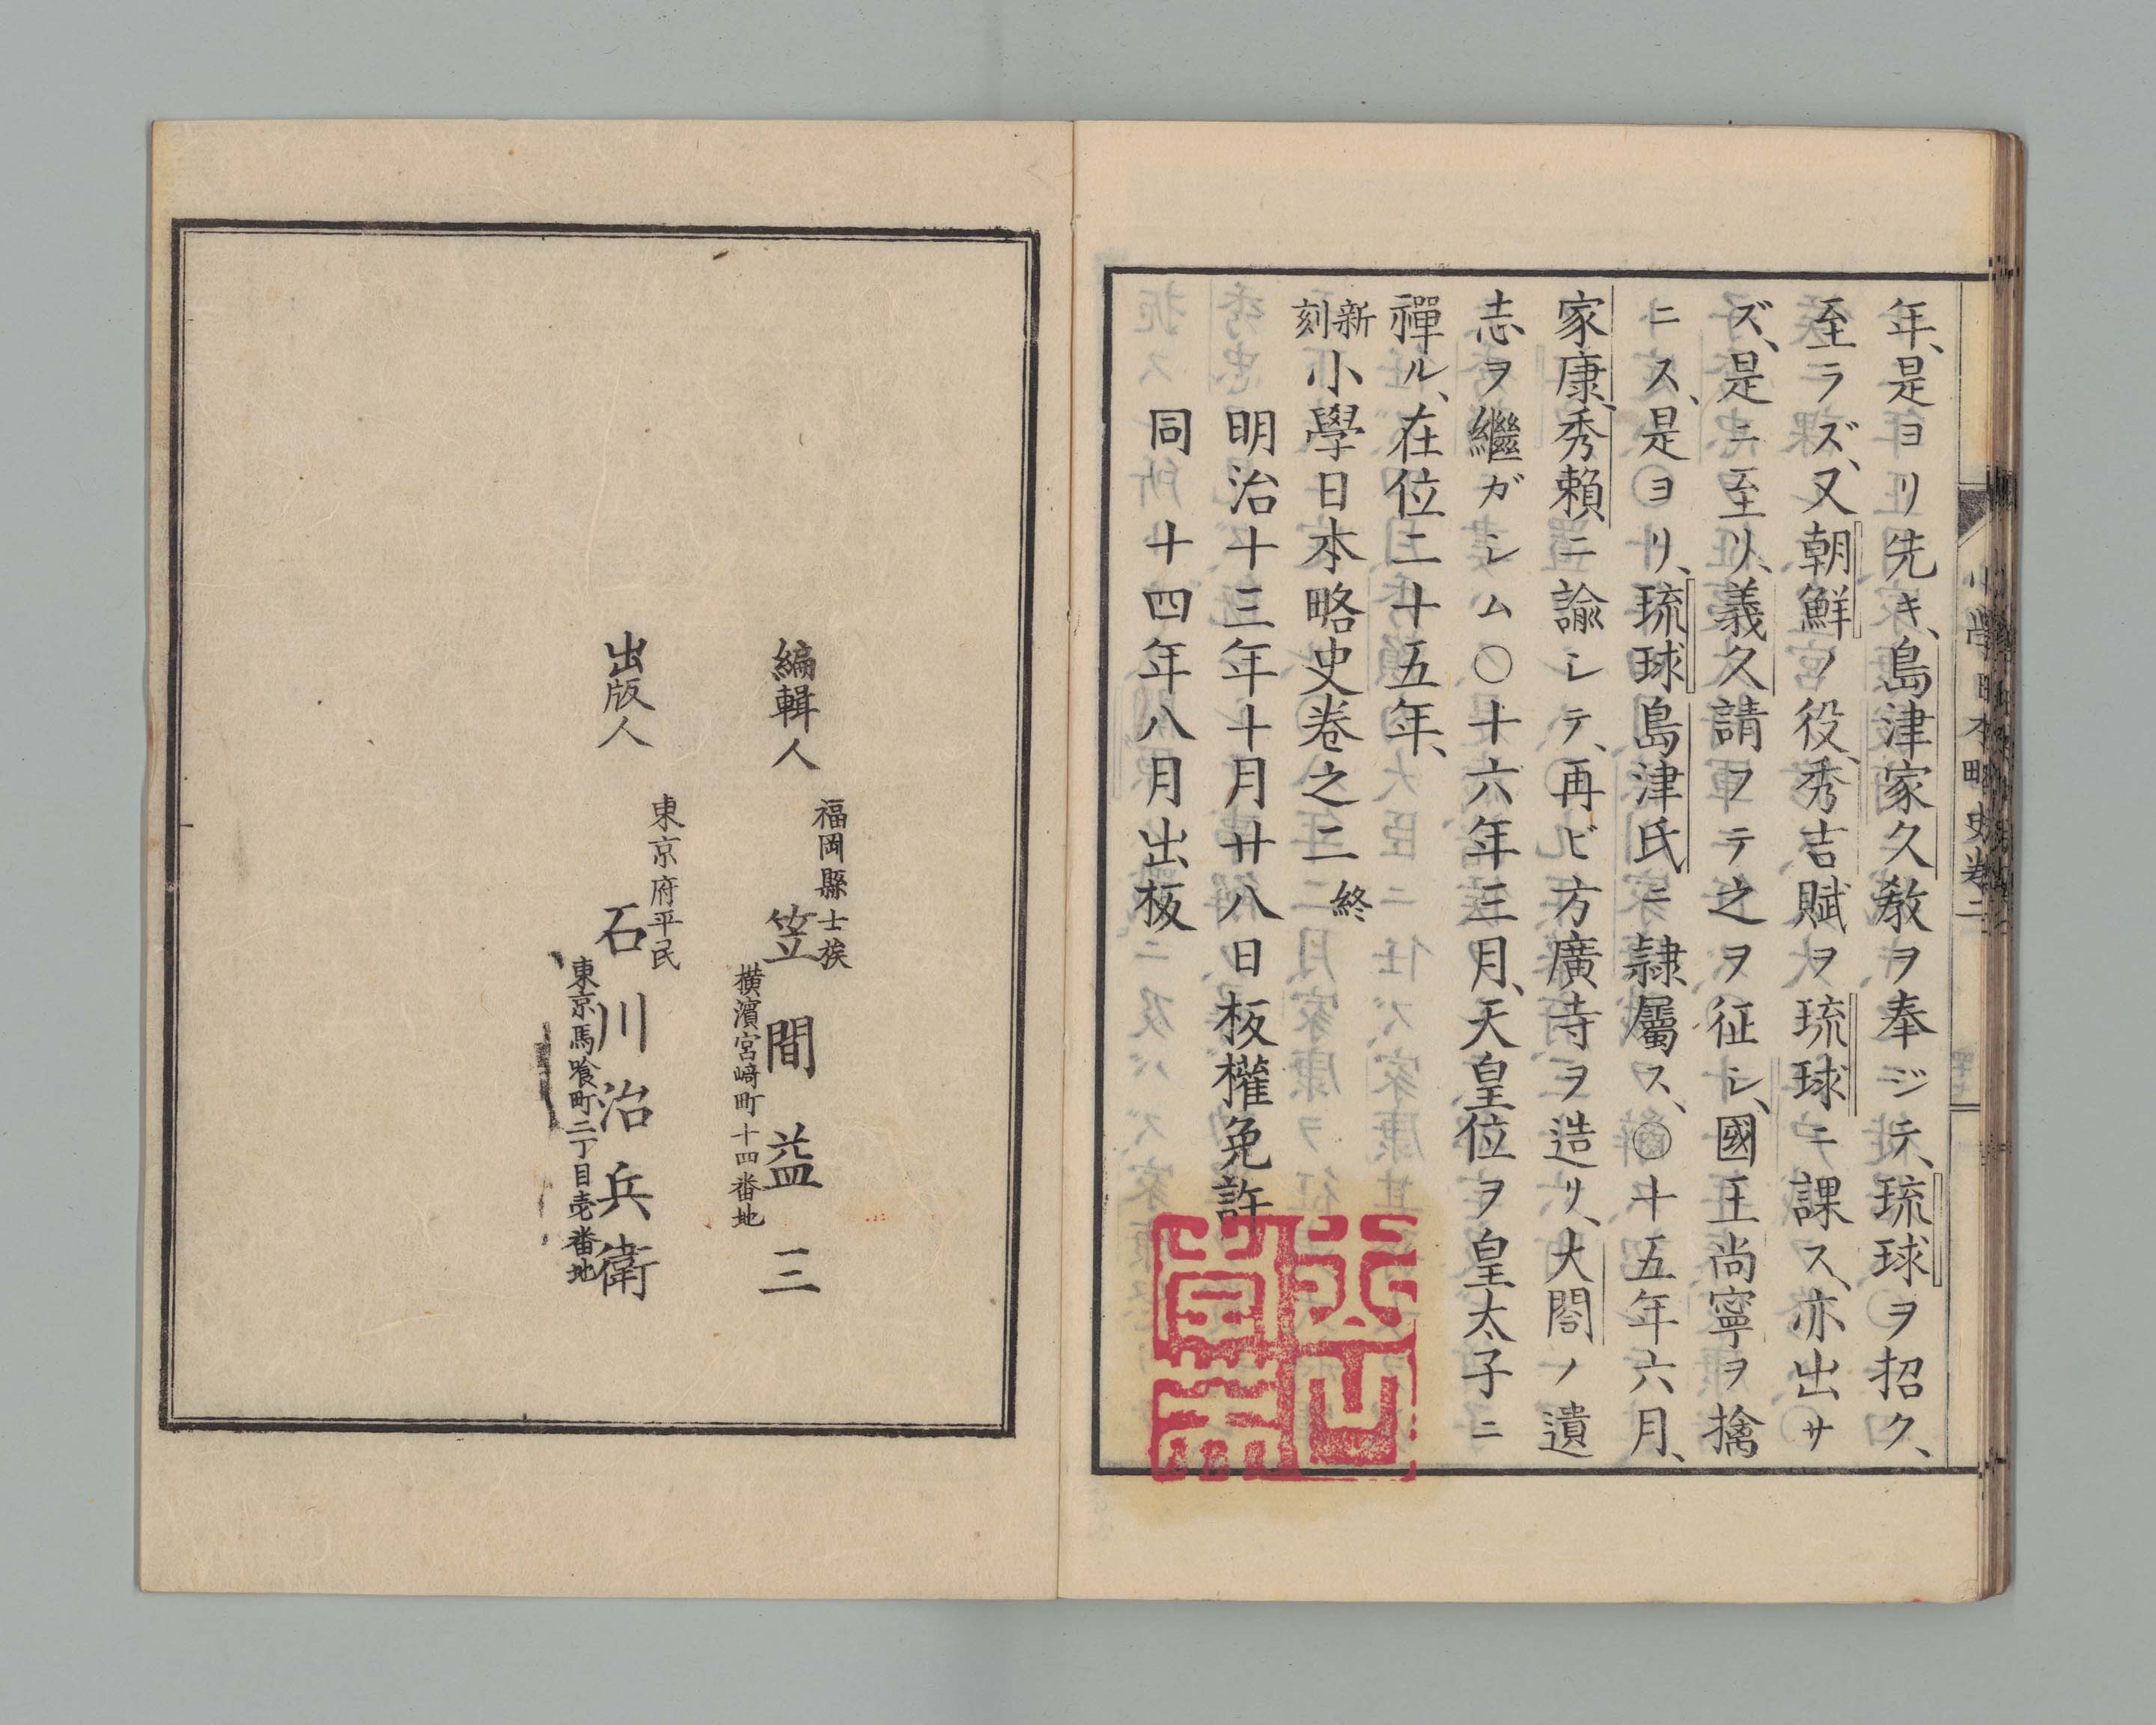 年、是ヨリ先キ、島津家久教ヲ奉ジテ、琉球ヲ招ク、
至ラズ、又朝鮮ノ役、秀吉賦ヲ琉球ニ課ス、亦出サ
ズ、是ニ至リ、義久請フテ之ヲ征シ、國王尚寧ヲ擒
ニス、是ヨリ、琉球島津氏ニ隷屬ス、〇十五年六月、
家康、秀賴ニ諭シテ、再ビ方廣寺ヲ造リ、大閤ノ遺
志ヲ繼ガシム〇十六年三月、天皇位ヲ皇太子ニ
禪ル、在位二十五年、
新刻小學日本略史卷之二終
明治十三年十月廿八日板權免許
同十四年八月出板
小學日本略史卷二
編輯人
福岡縣士族
笠間益三
橫濱宮﨑町十四番地
出版人
東京府平民
石川治兵衛
東京馬喰町二丁目壱番地